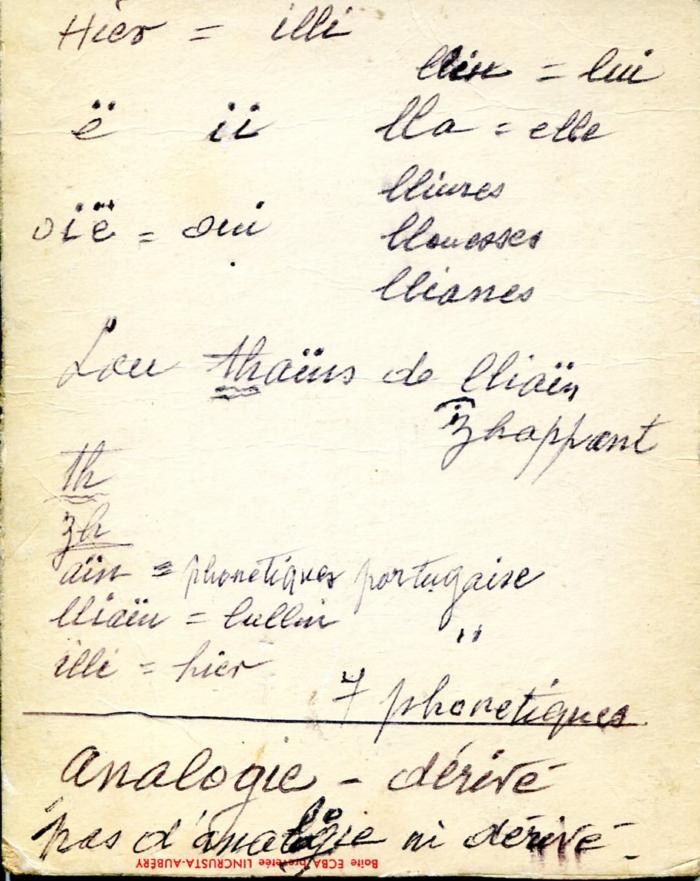 Hier = illi
lliu = lui
ë ïi lla = elle
lliures
oïë = oui llouesses
llianes
Lou thaïns de lliaïn
zhappant
th
zh
aïn = phonétiques portugaise
lliaïn = lullin "
illi = hier
7 phonétiques
analogie - dérivé
pas d'analogie ni dérivé -
Boite ECBA brevetée LINCRUSTA-AUBÉRY